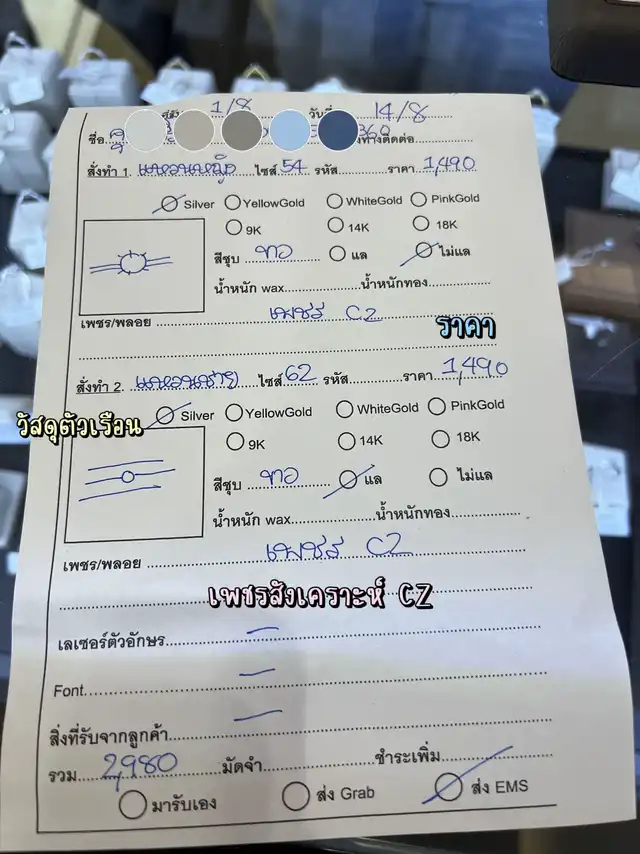 1/8 วันที่ 14/8
ชื่อ ทางติดต่อ
สั่งทำ 1. แหวนหญิง ไซส์ 54 รหัส ราคา 1,490
Silver YellowGold WhiteGold PinkGold
9K 14K 18K
สีชุบ ขาว แล ไม่แล
น้ำหนัก wax น้ำหนักทอง
เพชร/พลอย เพชร CZ
ราคา
สั่งทำ 2. แหวนชาย ไซส์ 62 รหัส ราคา 1,490
วัสดุตัวเรือน
Silver YellowGold WhiteGold PinkGold
9K 14K 18K
สีชุบ ขาว แล ไม่แล
น้ำหนัก wax น้ำหนักทอง
เพชร/พลอย เพชร CZ
เพชรสังเคราะห์ CZ
เลเซอร์ตัวอักษร -
Font -
สิ่งที่รับจากลูกค้า -
รวม 2,980 มัดจำ ชำระเพิ่ม
มารับเอง ส่ง Grab ส่ง EMS